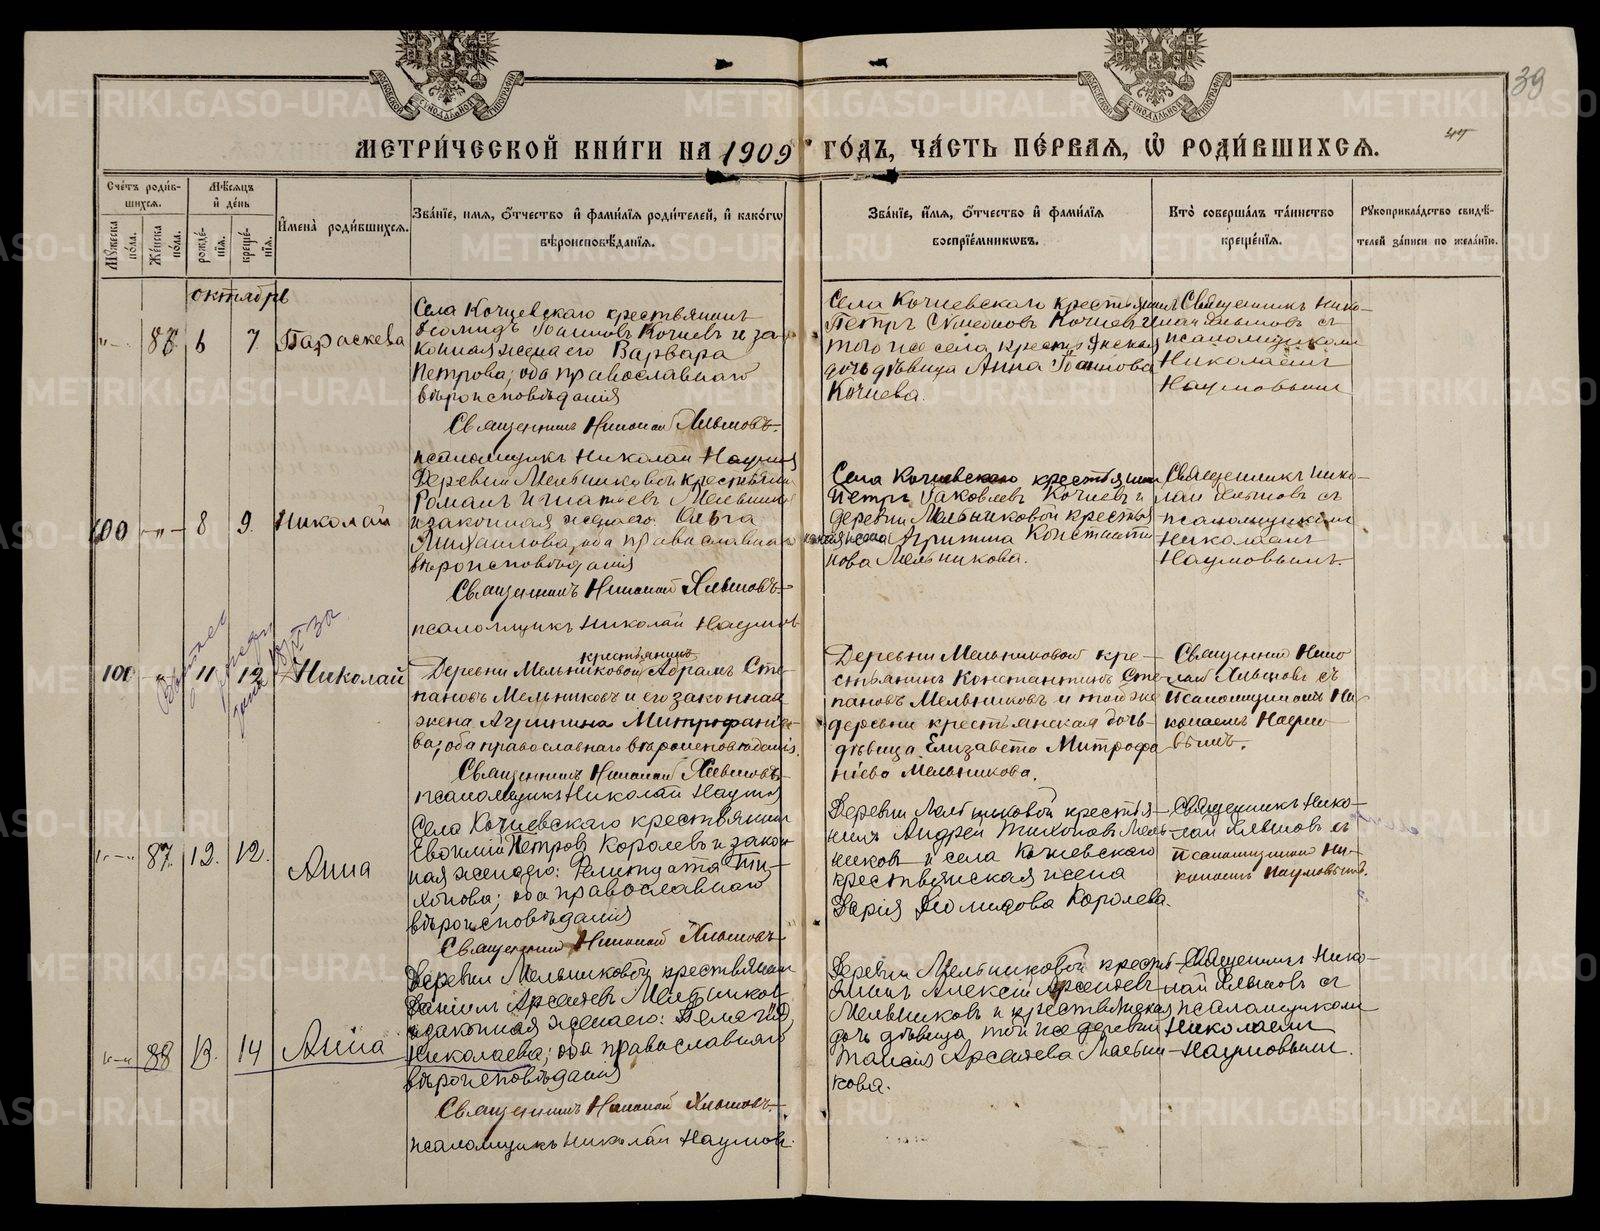 39
МЕТРИ́ЧЕСКОЙ КНИ́ГИ НА 1909 ГО́ДЪ, ЧА́СТЬ ПЕ́РВАЯ, Ѡ РОДИ́ВШИХСѦ.
Счётъ роди́вшихся.
Мѣ́сяцъ и҆ де́нь
И҆мена̀ роди́вшихся.
Зва́нїе, и҆мя, ѻ҆́тчество и҆ фами́лїя роди́телей, и҆ како́гѡ
вѣроисповѣ́данїя.
Зва́нїе, и҆́мя, ѻ҆́тчество и҆ фами́лїя
воспрїе́мникѡвъ.
Кто̀ соверша́лъ та́инство
креще́нїя.
Рꙋкоприкла́дство свидѣ́-
телей за́писи по жела́нїю.
Мꙋ́жеска по́ла.
Же́нска по́ла.
рожде́-нїя.
креще́-нїя.
октябрь
86 6 7 Параскева
Села Кочневскаго крестьянинъ
Іоанновъ Кочневъ и за-
конная жена его Варвара
Петрова; оба православнаго
вѣроисповѣданія
Священникъ Николай Хлыновъ.
псаломщикъ Николай Наумов
Села Кочневскаго крестьянинъ
Петръ Симеоновъ Кочневъ и
того же села крестьянская
дочь дѣвица Анна Іоаннова
Кочнева.
Священникъ Нико-
лай Хлыновъ съ
псаломщикомъ
Николаемъ
Наумовымъ
100 8 9. Николай
Деревни Мельниковой крестьянин
Романъ Игнатіевъ Мельников
и законная жена его: Ольга
Михаилова, оба православнаго
вѣроисповѣданія
Священникъ Николай Хлыновъ
псаломщикъ Николай Наумов
Села Кочневскаго крестьянин
Петръ Іаковлевъ Кочневъ и
деревни Мельниковой крестья
нская жена Агриппина Константи
нова Мельникова.
Священникъ Нико-
лай Хлыновъ съ
псаломщикомъ
Николаемъ
Наумовымъ.
100 11 12 Николай
крестьянинъ
Деревни Мельниковой Абрамъ Сте-
пановъ Мельниковъ и его законная
жена Агриппина Митрофаніе-
ва; оба православнаго вѣроисповѣданія.
Священникъ Николай Хлыновъ
псаломщикъ Николай Наумов
Деревни Мельниковой кре-
стьянинъ Константинъ Сте-
пановъ Мельниковъ и той же
деревни крестьянская дочь
дѣвица Елизавета Митрофа
ніева Мельникова.
Священникъ Нико
лай Хлыновъ съ
псаломщикомъ Ни
колаемъ Наумо
вымъ.
87. 12. 12. Анна
Села Кочневскаго крестьянин
Евѳимій Петровъ Королевъ и закон
ная жена его: Ти-
хонова; оба православнаго
вѣроисповѣданія
Священникъ Николай Хлыновъ
Деревни Мельниковой крестья-
нинъ Андрей Тихоновъ Мель-
никовъ и села Кочневскаго
крестьянская жена
Дарія Королева.
Священникъ Нико-
лай Хлыновъ съ
псаломщикомъ Ни-
колаемъ Наумовымъ.
88 13. 14 Анна
Деревни Мельниковой крестьянин
Даніилъ Арсеніевъ Мельников
и законная жена его: Пелагія
Николаева; оба православнаго
вѣроисповѣданія
Священникъ Николай Хлыновъ.
псаломщикъ Николай Наумов.
Деревни Мельниковой крестья-
нинъ Алексій Арсеніевъ
Мельниковъ и крестьянская
дочь дѣвица той же деревни
Таисія Арсеніева Мельни-
кова.
Священникъ Нико-
лай Хлыновъ съ
псаломщикомъ
Николаемъ
Наумовымъ.
METRIKI.GASO-URAL.RU